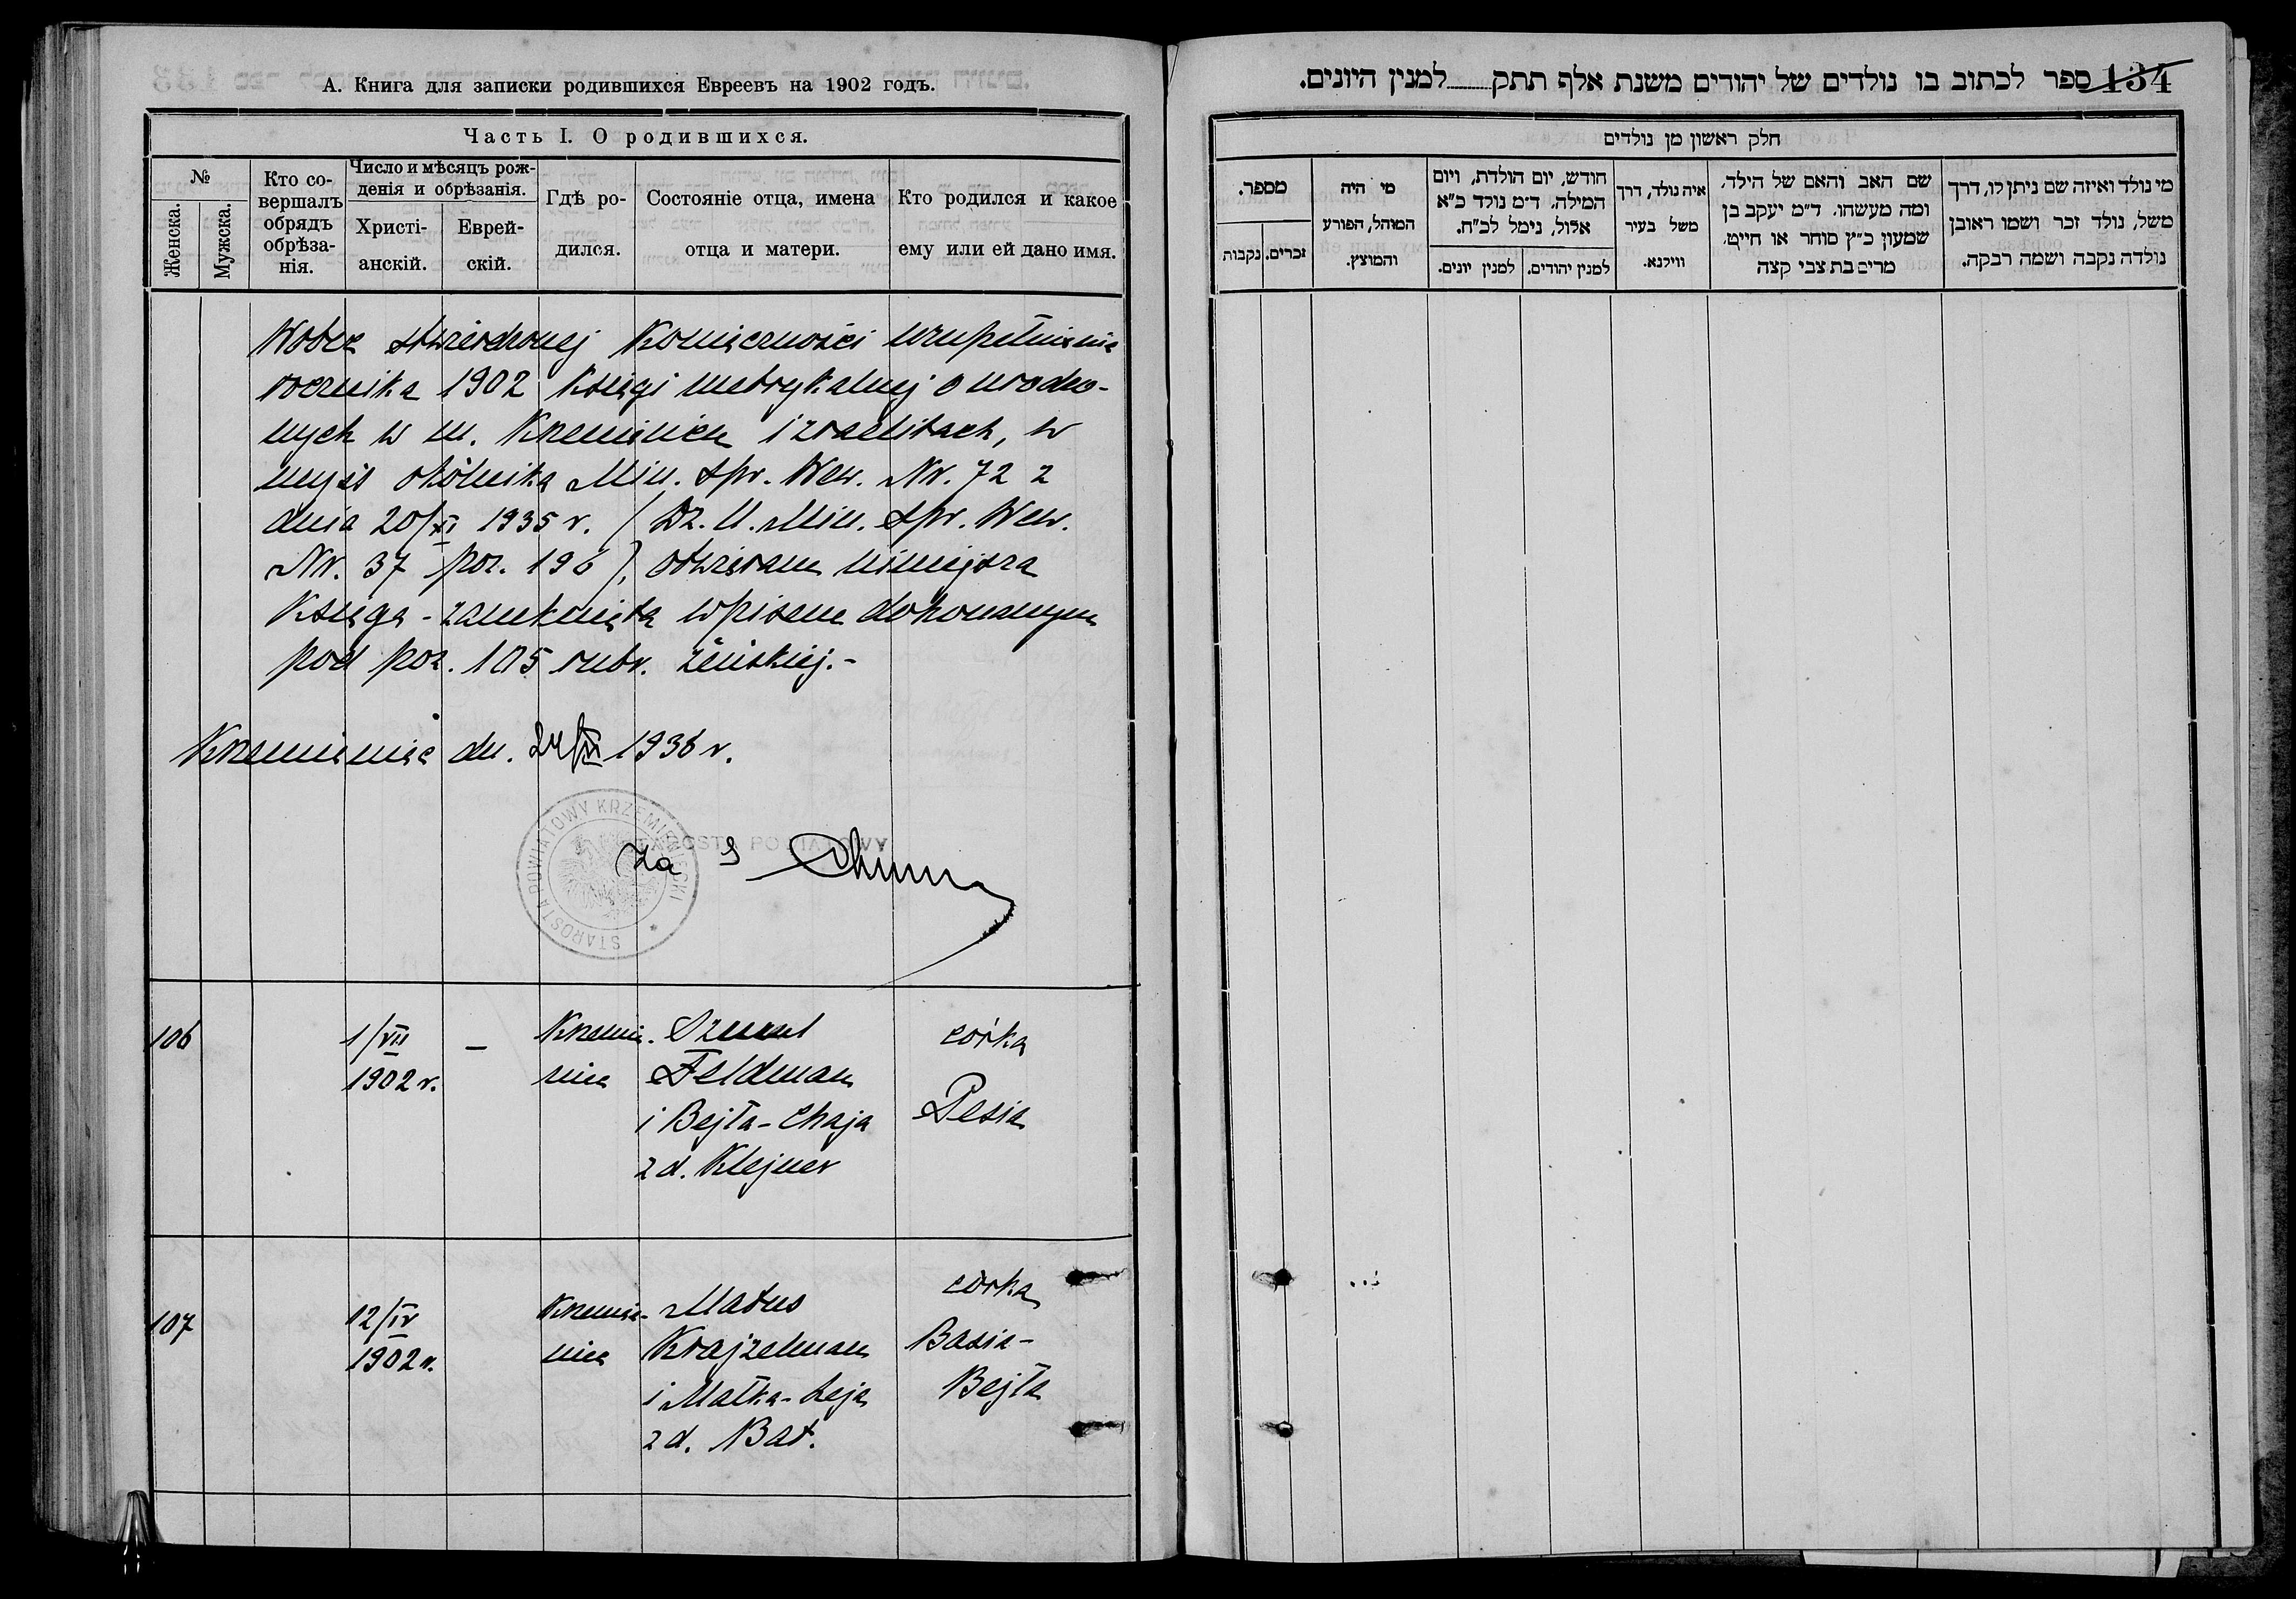 А. Книга для записки родившихся Евреевъ на 1902 годъ.
Часть I. О родившихся.
№
Женска.
Мужска.
Кто со-
вершалъ
обрядъ
обрѣза-
нія.
Число и мѣсяцъ рож-
денія и обрѣзанія.
Христі-
анскій.
Еврей-
скій.
Гдѣ ро-
дился.
Состояніе отца, имена
отца и матери.
Кто родился и какое
ему или ей дано имя.
Wobec stwierdzonej konieczności uzupełnienia
rocznika 1902 księgi metrykalnej o urodzo-
nych w m. Krzemieńcu izraelitach, w
myśl okólnika Min. Spr. Wew. Nr. 72 z
dnia 20/XI 1935 r. (Dz. U. Min. Spr. Wew.
Nr. 37 poz. 196), otwieram niniejszą
księgę - zamkniętą wpisem dokonanym
pod poz. 105 rubr. żeńskiej.-
Krzemieniec dn. 24/XII 1936 r.
STAROSTA POWIATOWY KRZEMIENIECKI
STAROSTA POWIATOWY
za
106
1/VII
1902 r.
—
Krzemie-
niec
Szmul
Feldman
i Bejła-Chaja
z d. Klejner
córka
Pesia
107
12/IV
1902 r.
Krzemie-
niec
Matus
Krajzelman
i Małka-Leja
z d. Bat.
córka
Basia-
Bejła
134 ספר לכתוב בו נולדים של יהודים משנת אלף תתק למנין היונים.
חלק ראשון מן נולדים
מי נולד ואיזה שם ניתן לו, דרך
משל, נולד זכר ושמו ראובן
נולדה נקבה ושמה רבקה.
שם האב והאם של הילד,
ומה מעשהו. ד״מ יעקב בן
שמעון כ״ץ סוחר או חייט,
מרים בת צבי קצה
איה נולד, דרך
משל בעיר
ווילנא.
חודש, יום הולדת, ויום
המילה. ד״מ נולד כ״א
אלול, נימל לכ״ח.
למנין יהודים.
למנין יונים.
מי היה
המוהל, הפורע
והמוצץ.
מספר.
זכרים.
נקבות